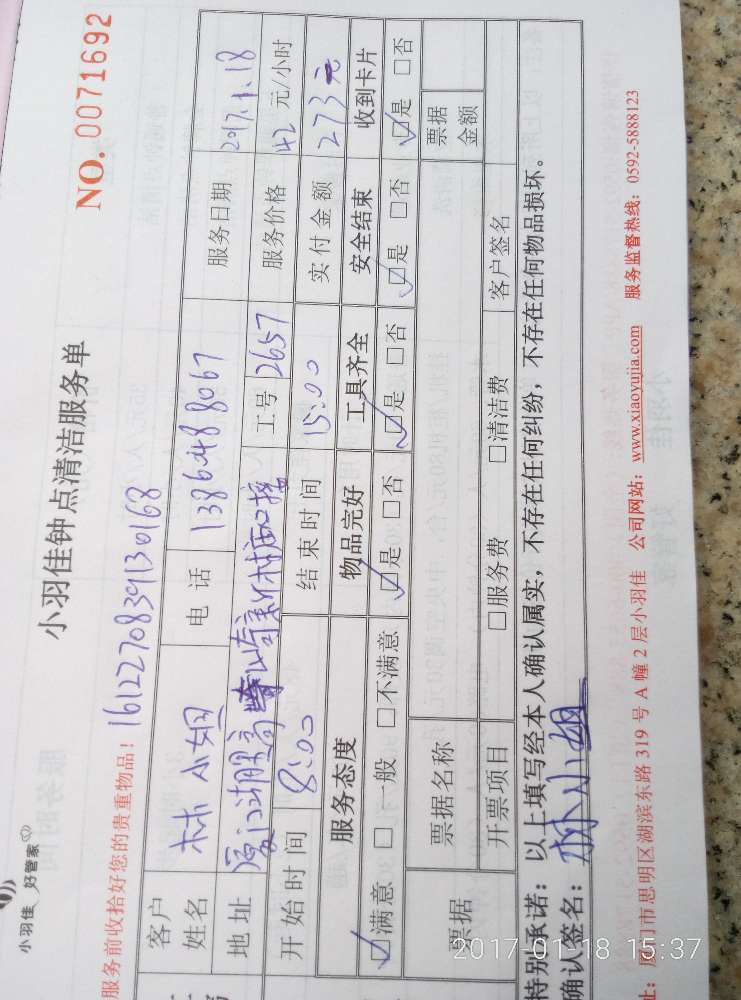 小羽佳 好管家
小羽佳钟点清洁服务单
NO. 0071692
服务前收拾好您的贵重物品! 1612270839130168
客户姓名 林小姐 电话 13864888067 服务日期 2017.1.18
地址 厦门湖里高崎新村 工号 2657 服务价格 42 元/小时
开始时间 8:00 结束时间 15:00 实付金额 273元
服务态度 物品完好 工具齐全 安全结束 收到卡片
☑满意 □一般 □不满意 ☑是 □否 ☑是 □否 ☑是 □否 ☑是 □否
票据 票据名称 票据金额
开票项目 □服务费 □清洁费 客户签名
特别承诺: 以上填写经本人确认属实,不存在任何纠纷,不存在任何物品损坏。
确认签名: 林小姐
址: 厦门市思明区湖滨东路 319 号 A 幢 2 层小羽佳 公司网站: www.xiaoyujia.com 服务监督热线: 0592-5888123
2017.01.18 15:37